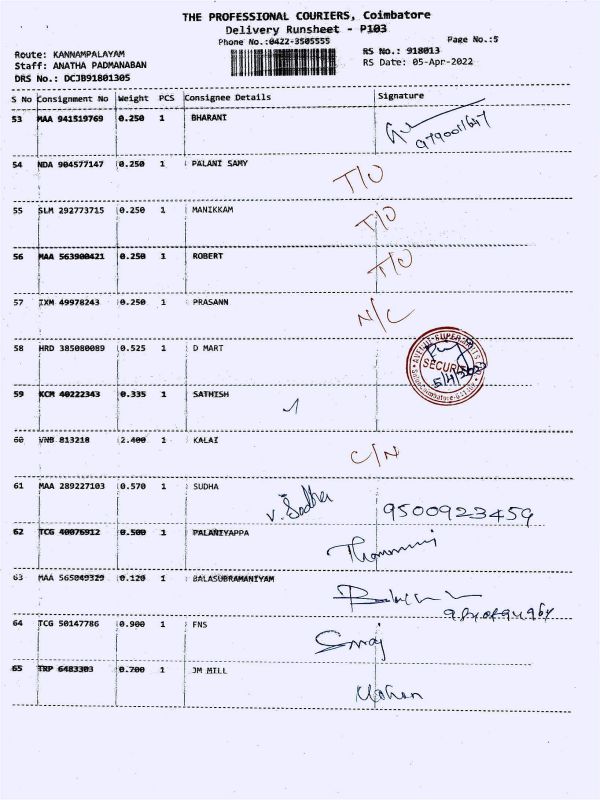 THE PROFESSIONAL COURIERS, Coimbatore
Delivery Runsheet - P103
Phone No.:0422-3505555
Page No.:5
Route: KANNAMPALAYAM
RS No.: 918013
Staff: ANATHA PADMANABAN
RS Date: 05-Apr-2022
DRS No.: DCJB91801305
S No Consignment No Weight PCS Consignee Details Signature
53 MAA 941519769 0.250 1 : BHARANI
54 NDA 904577147 0.250 1 : PALANI SAMY T/O
55 SLM 292773715 0.250 1 : MANIKKAM T/O
56 MAA 563900421 0.250 1 : ROBERT T/O
57 IXM 49978243 0.250 1 : PRASANN N/C
58 HRD 385080089 0.525 1 : D MART SECURITY
59 KCM 40222343 0.335 1 : SATHISH
60 VNB 813218 2.400 1 : KALAI C/N
61 MAA 289227103 0.570 1 : SUDHA V. Sudha 9500923459
62 TCG 40076912 0.500 1 : PALANIYAPPA
63 MAA 565049329 0.120 1 : BALASUBRAMANIYAM
64 TCG 50147786 0.900 1 : FNS
65 TRP 6483303 0.700 1 : JM MILL Mohan